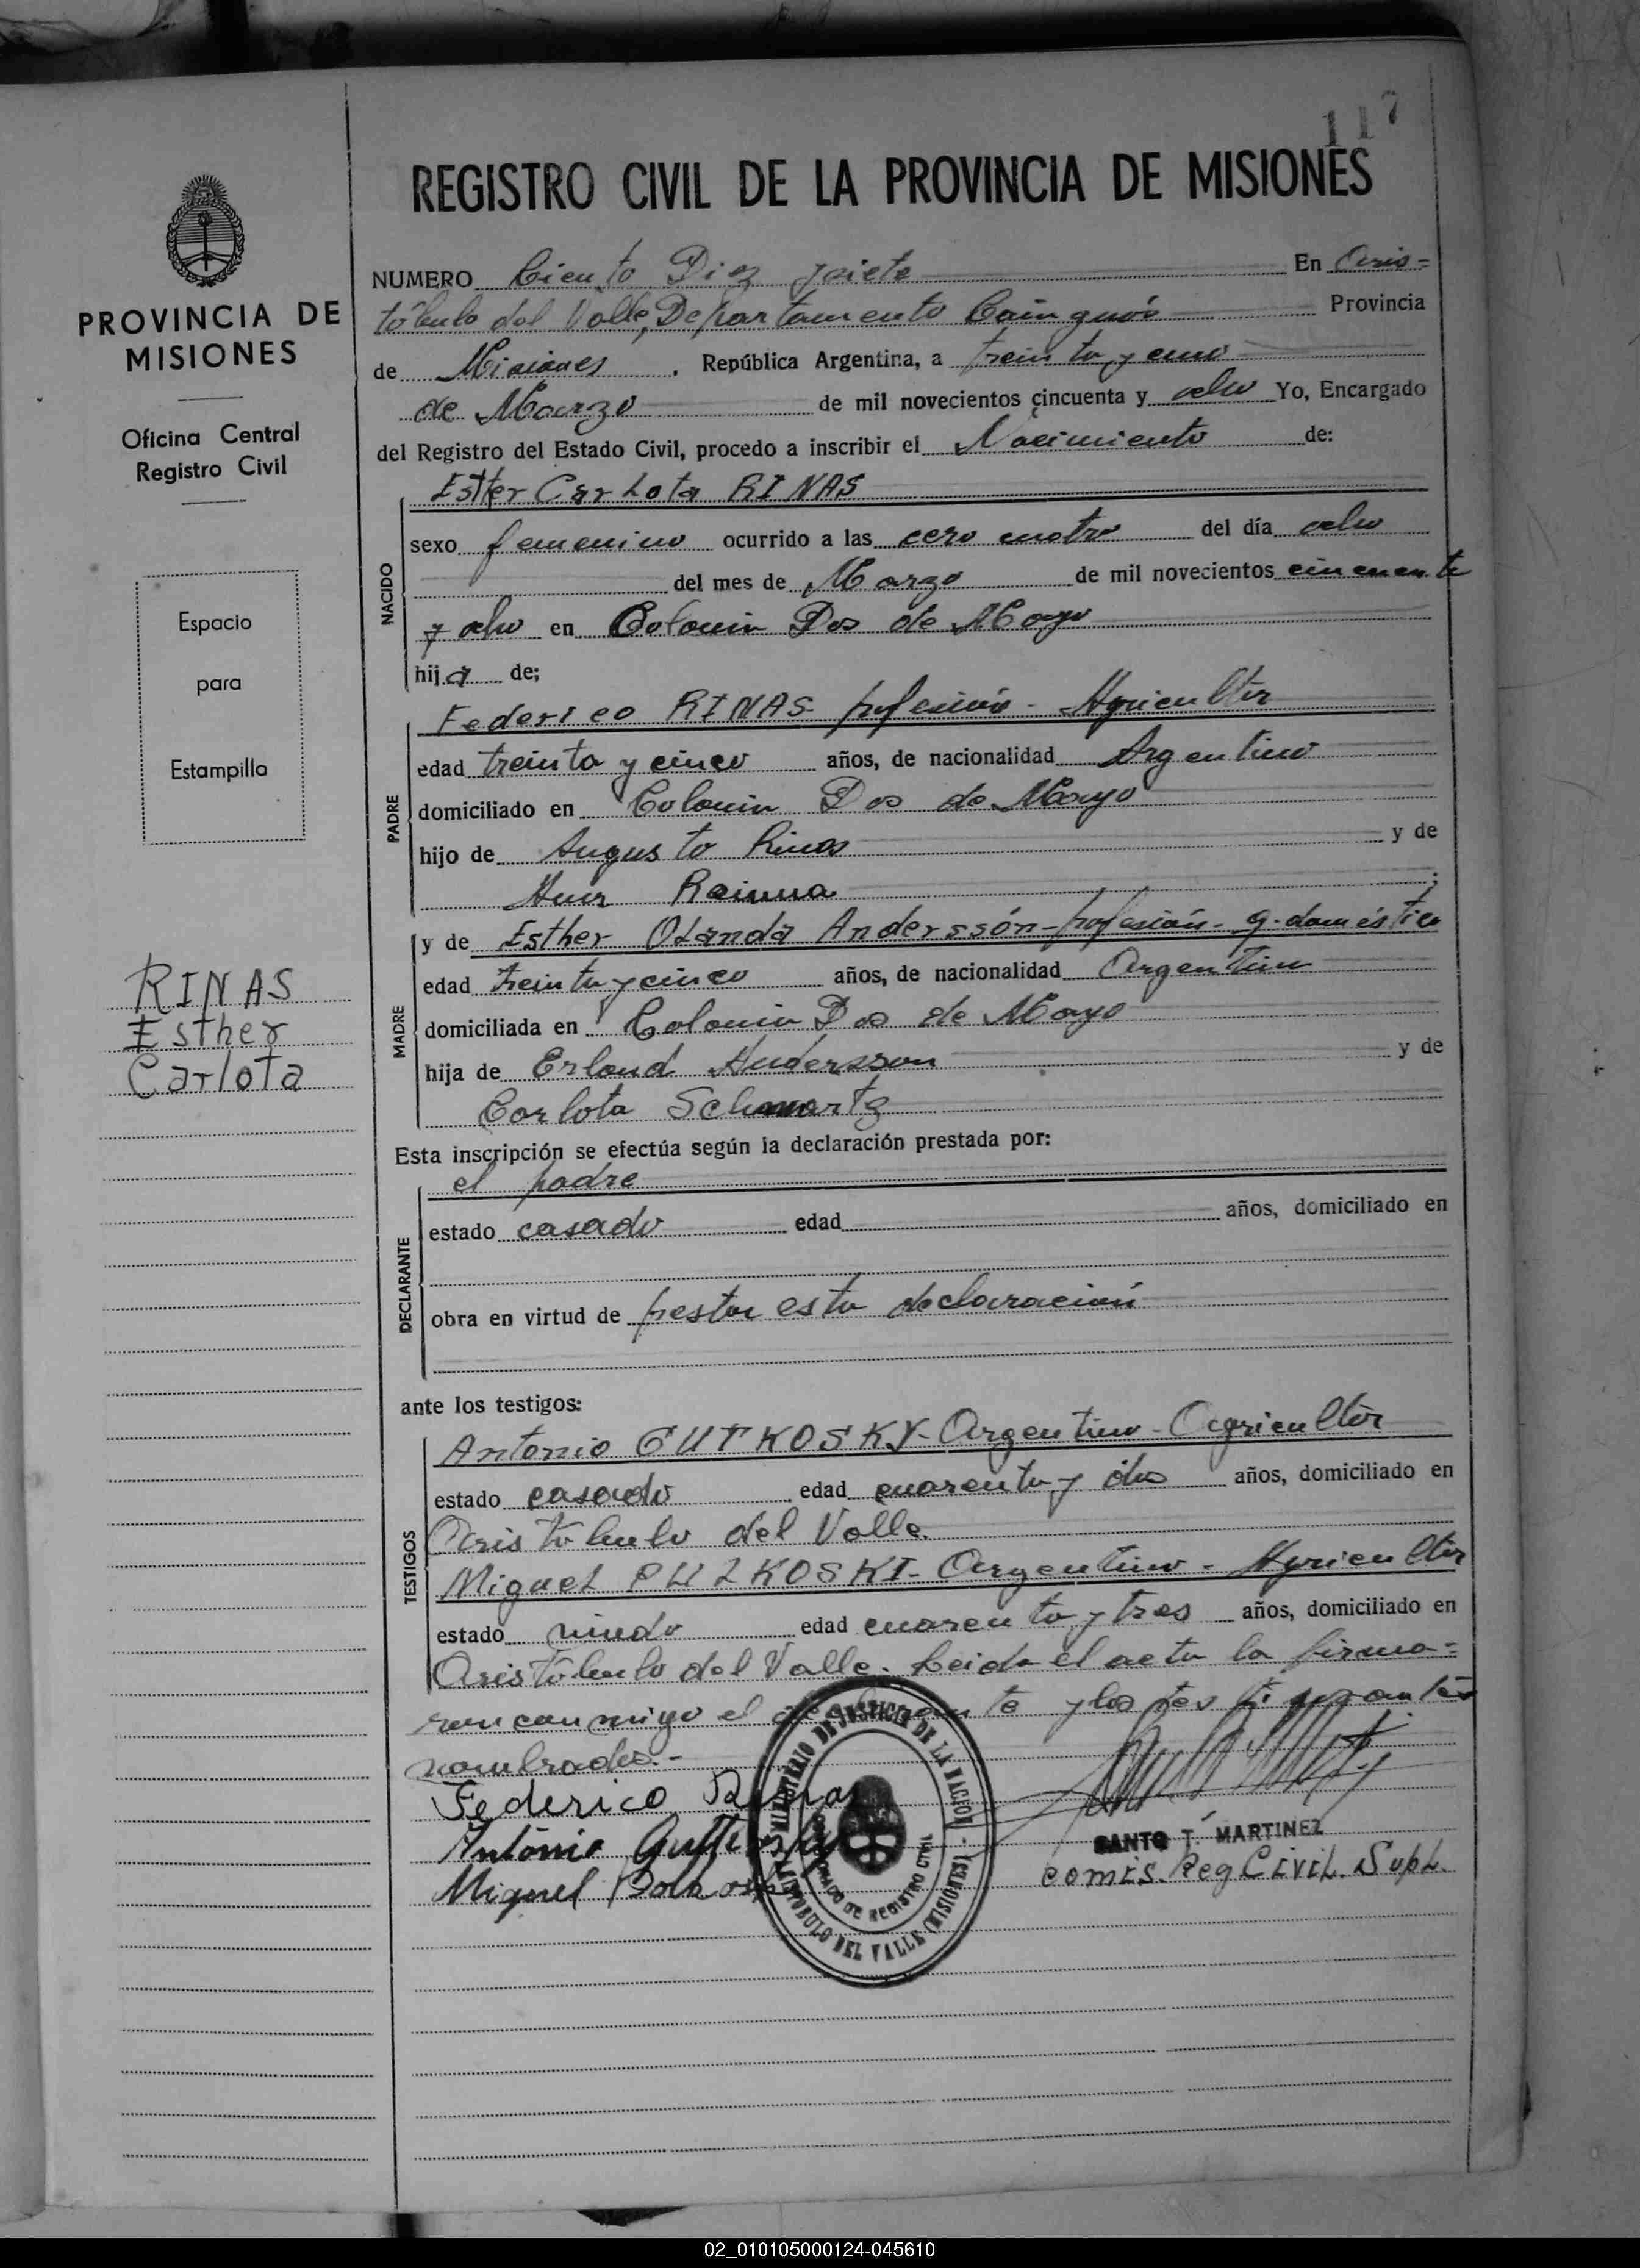 117
REGISTRO CIVIL DE LA PROVINCIA DE MISIONES
PROVINCIA DE
MISIONES
Oficina Central
Registro Civil
Espacio
para
Estampilla
RINAS
Esther
Carlota
NUMERO Ciento Diez y siete En Aris=
tóbulo del Valle, Departamento Cainguás Provincia
de Misiones, República Argentina, a treinta y uno
de Marzo de mil novecientos cincuenta y ocho Yo, Encargado
del Registro del Estado Civil, procedo a inscribir el Nacimiento de:
NACIDO
Esther Carlota RINAS
sexo femenino ocurrido a las cero cuatro del día ocho
del mes de Marzo de mil novecientos cincuenta
y ocho en Colonia Dos de Mayo
hija de;
PADRE
Federico RINAS profesión - Agricultor
edad treinta y cinco años, de nacionalidad Argentino
domiciliado en Colonia Dos de Mayo
hijo de Augusto Rinas y de
;
MADRE
y de Esther Olanda Anderssón - profesión - q. doméstico
edad treinta y cinco años, de nacionalidad Argentina
domiciliada en Colonia Dos de Mayo
hija de Erland Andersson y de
Carlota Schwartz
Esta inscripción se efectúa según la declaración prestada por:
DECLARANTE
el padre
estado casado edad años, domiciliado en
obra en virtud de prestar esta declaración
ante los testigos:
TESTIGOS
Antonio GUTKOSKY - Argentino - Agricultor
estado casado edad cuarenta y dos años, domiciliado en
Aristóbulo del Valle.
Miguel - Argentino - Agricultor
estado viudo edad cuarenta y tres años, domiciliado en
Aristóbulo del Valle. Leida el acta la firma=
ron conmigo el declarante y los testigos antes
nombrados.-
Federico Rinas
Antônio
Miguel
MINISTERIO DE JUSTICIA DE LA NACION
ARISTOBULO DEL VALLE (MISIONES)
DE REGISTRO CIVIL
SANTO T. MARTINEZ
comis. Reg Civil. Supl.
02_010105000124-045610